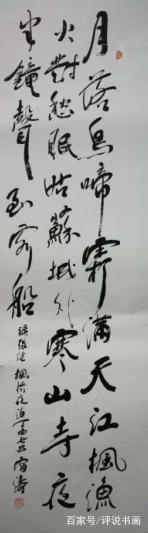 月落烏啼霜滿天江楓漁
火對愁眠姑蘇城外寒山寺夜
半鐘聲到客船
張継楓橋夜泊
百家号/评说书画